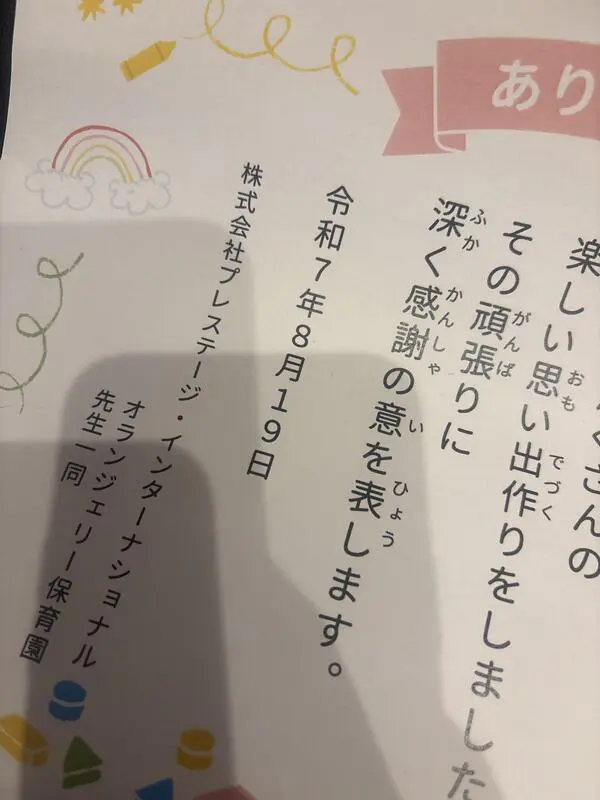 あり
くさんの
楽しい思い出作りをしました
その頑張りに
深く感謝の意を表します。
令和7年8月19日
株式会社プレステージ・インターナショナル
オランジェリー保育園
先生一同